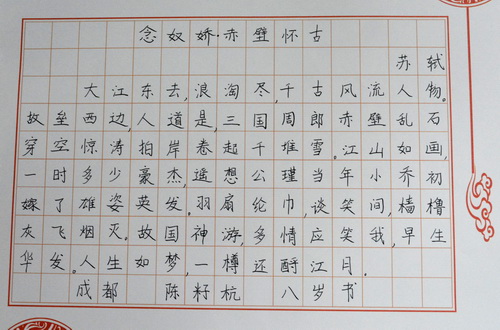 念奴娇·赤壁怀古
苏轼
大江东去,浪淘尽,千古风流人物。
故垒西边,人道是,三国周郎赤壁乱石
穿空惊涛拍岸卷起千堆雪。江山如画,
一时多少豪杰,遥想公瑾当年小乔初
嫁了雄姿英发。羽扇纶巾,谈笑间,樯橹
灰飞烟灭。故国神游,多情应笑我,早生
华发。人生如梦,一樽还酹江月.
成都 陈籽杭 八岁书